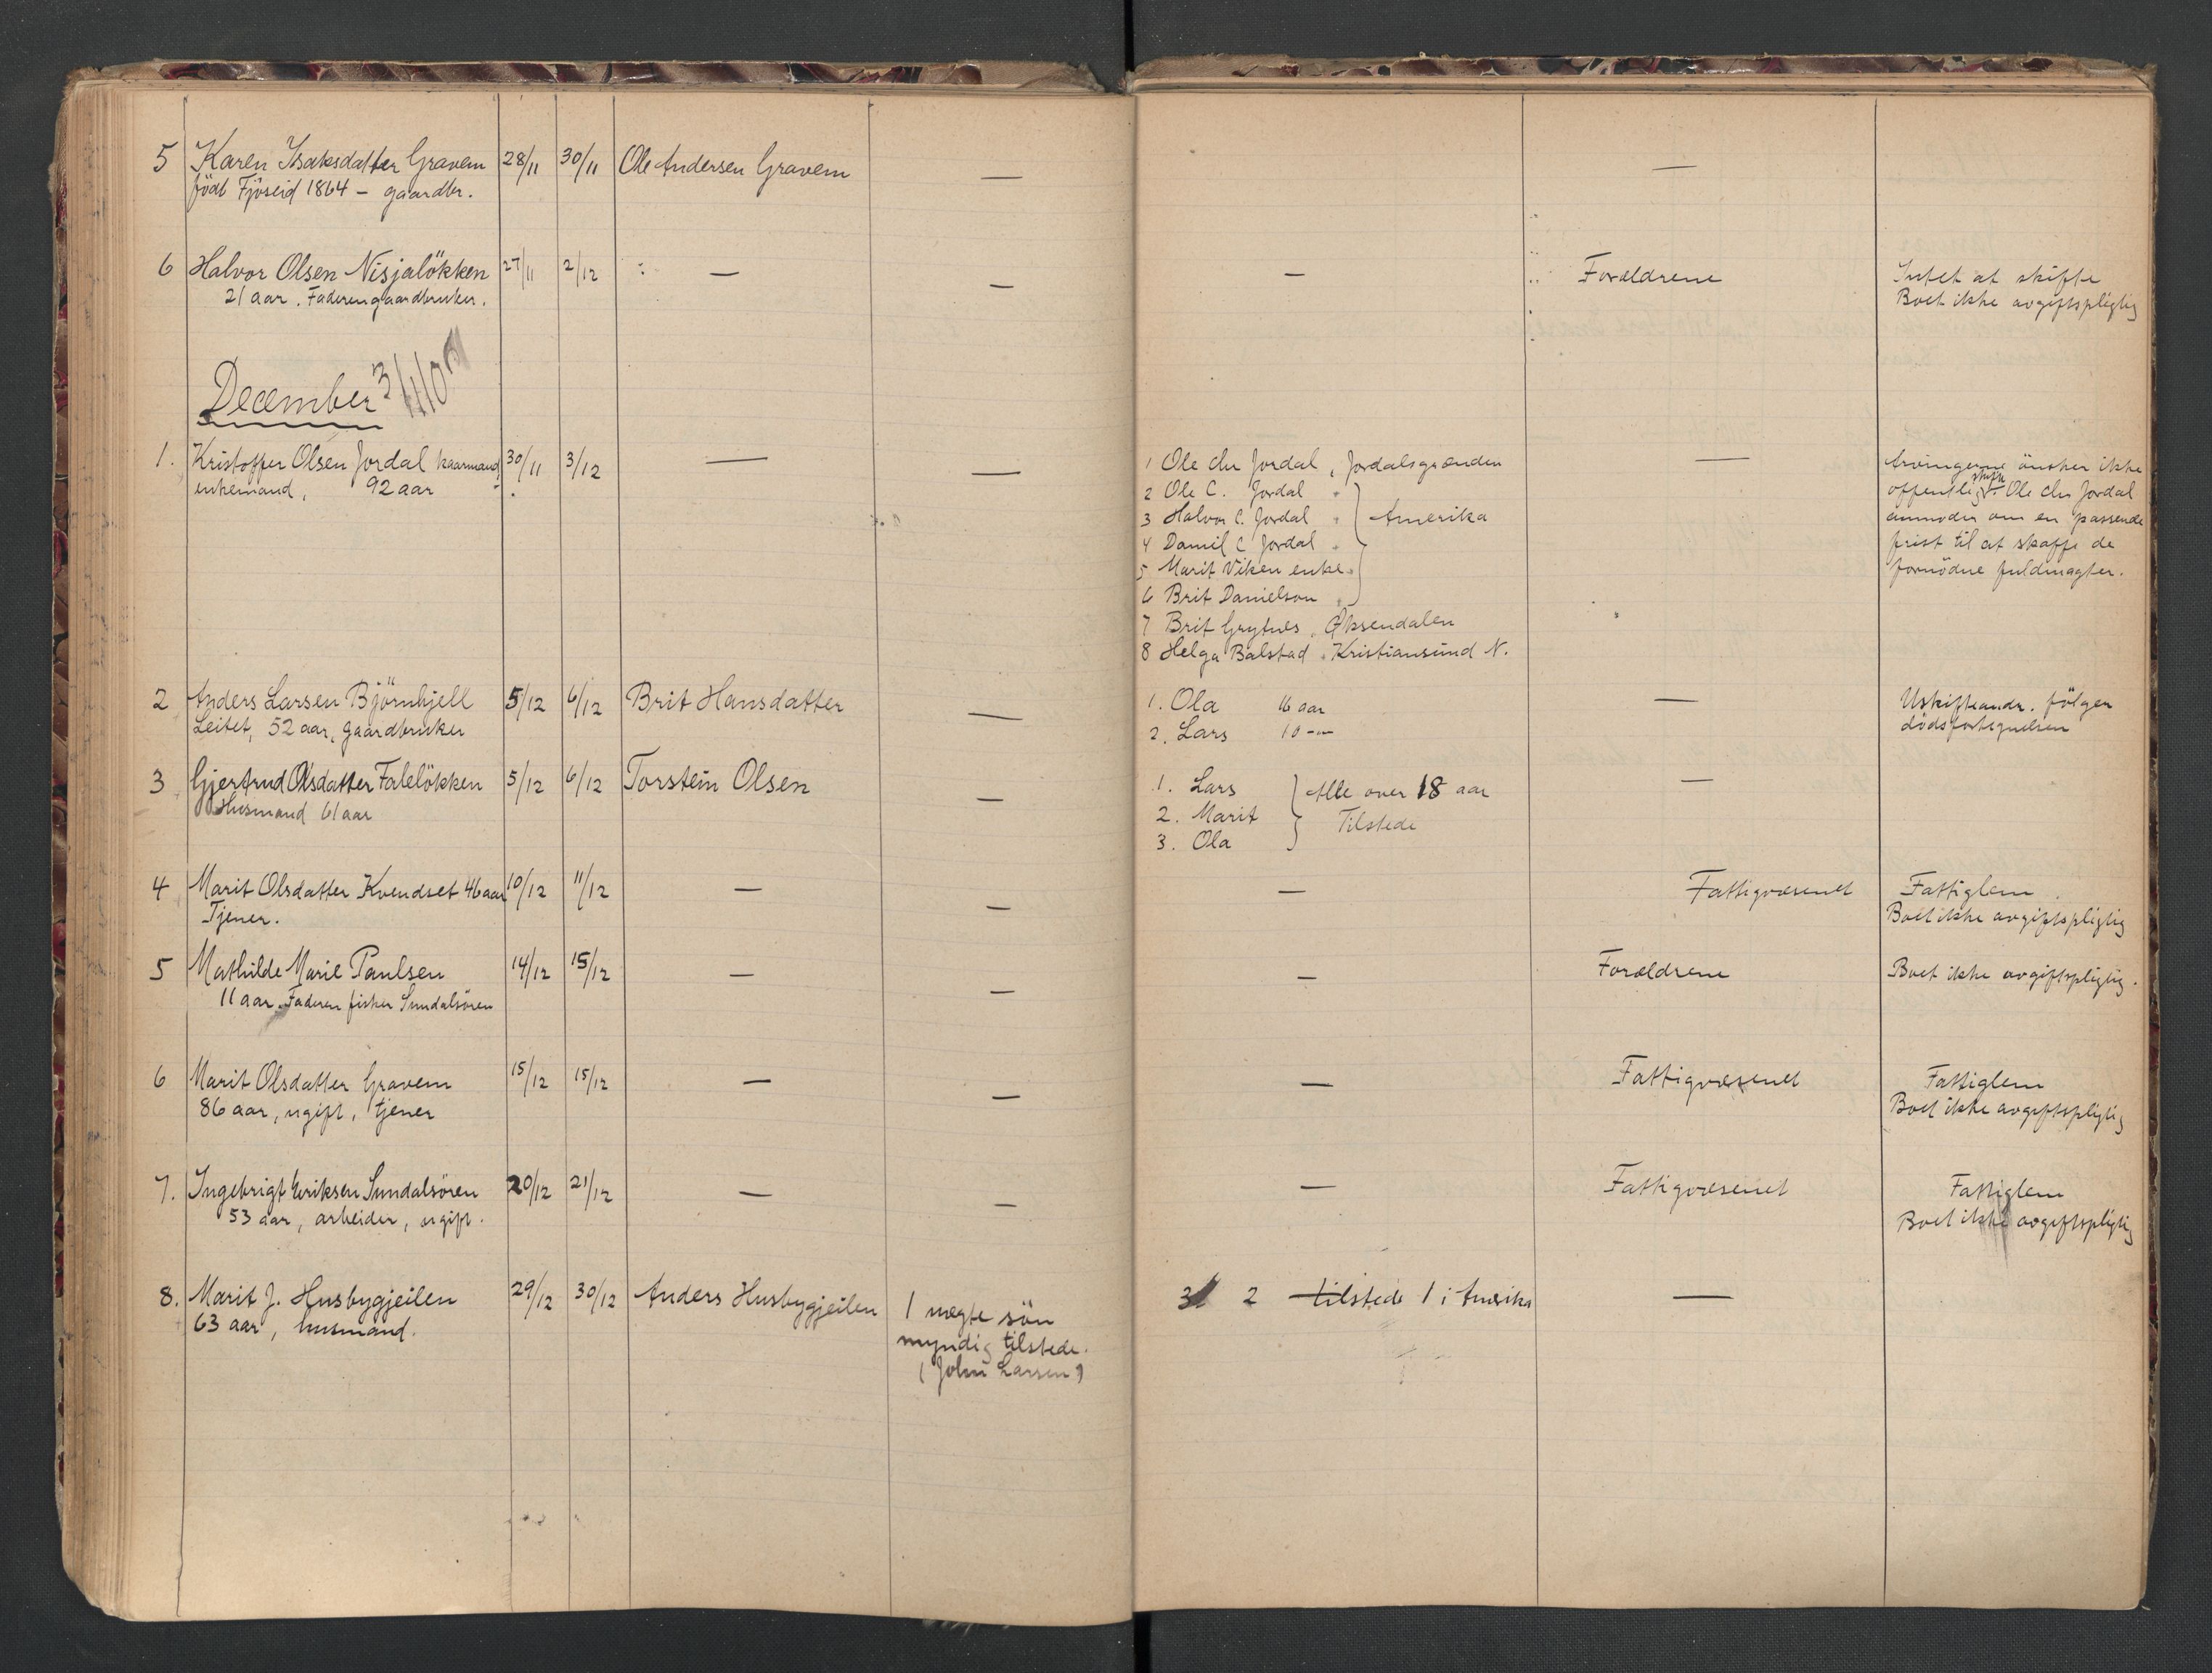 5 Karen Isaksdatter Gravem 28/11 30/11 Ole Andersen Gravem — —
født Fjöseid 1864 - gaardbr.
6 Halvor Olsen Nisjalökken 27/11 2/12 — — — Forældrene Intet at skifte
21 aar. Faderen gaardbruker. Boet ikke avgiftspligtig
December
1. Kristoffer Olsen Jordal kaarmand 30/11 3/12 — — 1 Ole Chr Jordal, Jordalsgrænden — Arvingerne önsker ikke
enkemand, 92 aar 2 Ole C. Jordal offentlig skifte. Ole Chr Jordal
3 Halvor C. Jordal Amerika anmoder om en passende
4 Daniel C Jordal frist til at skaffe de
5 Marit Viken enke fornödne fuldmagter.
6 Brit Danielson
7 Brit Grytnes, Öksendalen
8 Helga Balstad. Kristiansund N.
2 Anders Larsen Björnhjell 5/12 6/12 Brit Hansdatter — 1. Ola 16 aar — Uskifteandr. fölger
Leitet, 52 aar, gaardbruker 2. Lars 10 -"- dödsfortegnelsen
3 Gjertrud Olsdatter Faleløkken 5/12 6/12 Torstein Olsen — 1. Lars Alle over 18 aar —
Husmand 61 aar 2. Marit Tilstede
3. Ola
4 Marit Olsdatter Kvendset 46 aar 10/12 11/12 — — — Fattigvæsenet Fattiglem
Tjener. Boet ikke avgiftspligtig
5 Mathilde Marie Paulsen 14/12 15/12 — — — Forældrene Boet ikke avgiftspligtig.
11 aar. Faderen fisker Sundalsören
6 Marit Olsdatter Gravem 15/12 15/12 — — — Fattigvæsenet Fattiglem
86 aar, ugift, tjener Boet ikke avgiftspligtig
7. Ingebrigt Eriksen Sundalsören 20/12 21/12 — — — Fattigvæsenet Fattiglem
53 aar, arbeider, ugift. Boet ikke avgiftspligtig
8. Marit J. Husbygjeilen 29/12 30/12 Anders Husbygjeilen 1 uægte sön 3 2 tilstede 1 i Amerika —
63 aar, husmand. myndig tilstede.
(John Larsen)